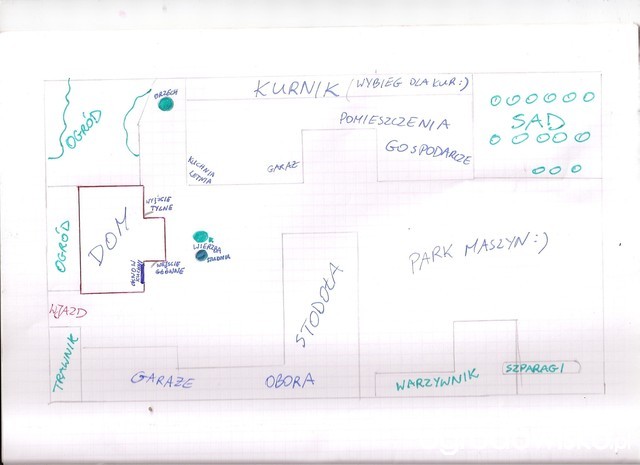 KURNIK (WYBIEG DLA KUR:)
ORZECH
OGRÓD
POMIESZCZENIA
GOSPODARZE
SAD
KUCHNIA
LETNIA
GARAŻ
WYJŚCIE
TYLNE
DOM
OGRÓD
WIERZBA
STUDNIA
WEJŚCIE
GŁÓWNE
PARK MASZYN:)
STODOŁA
WJAZD
TRAWNIK
GARAŻE
OBORA
WARZYWNIK
SZPARAGI